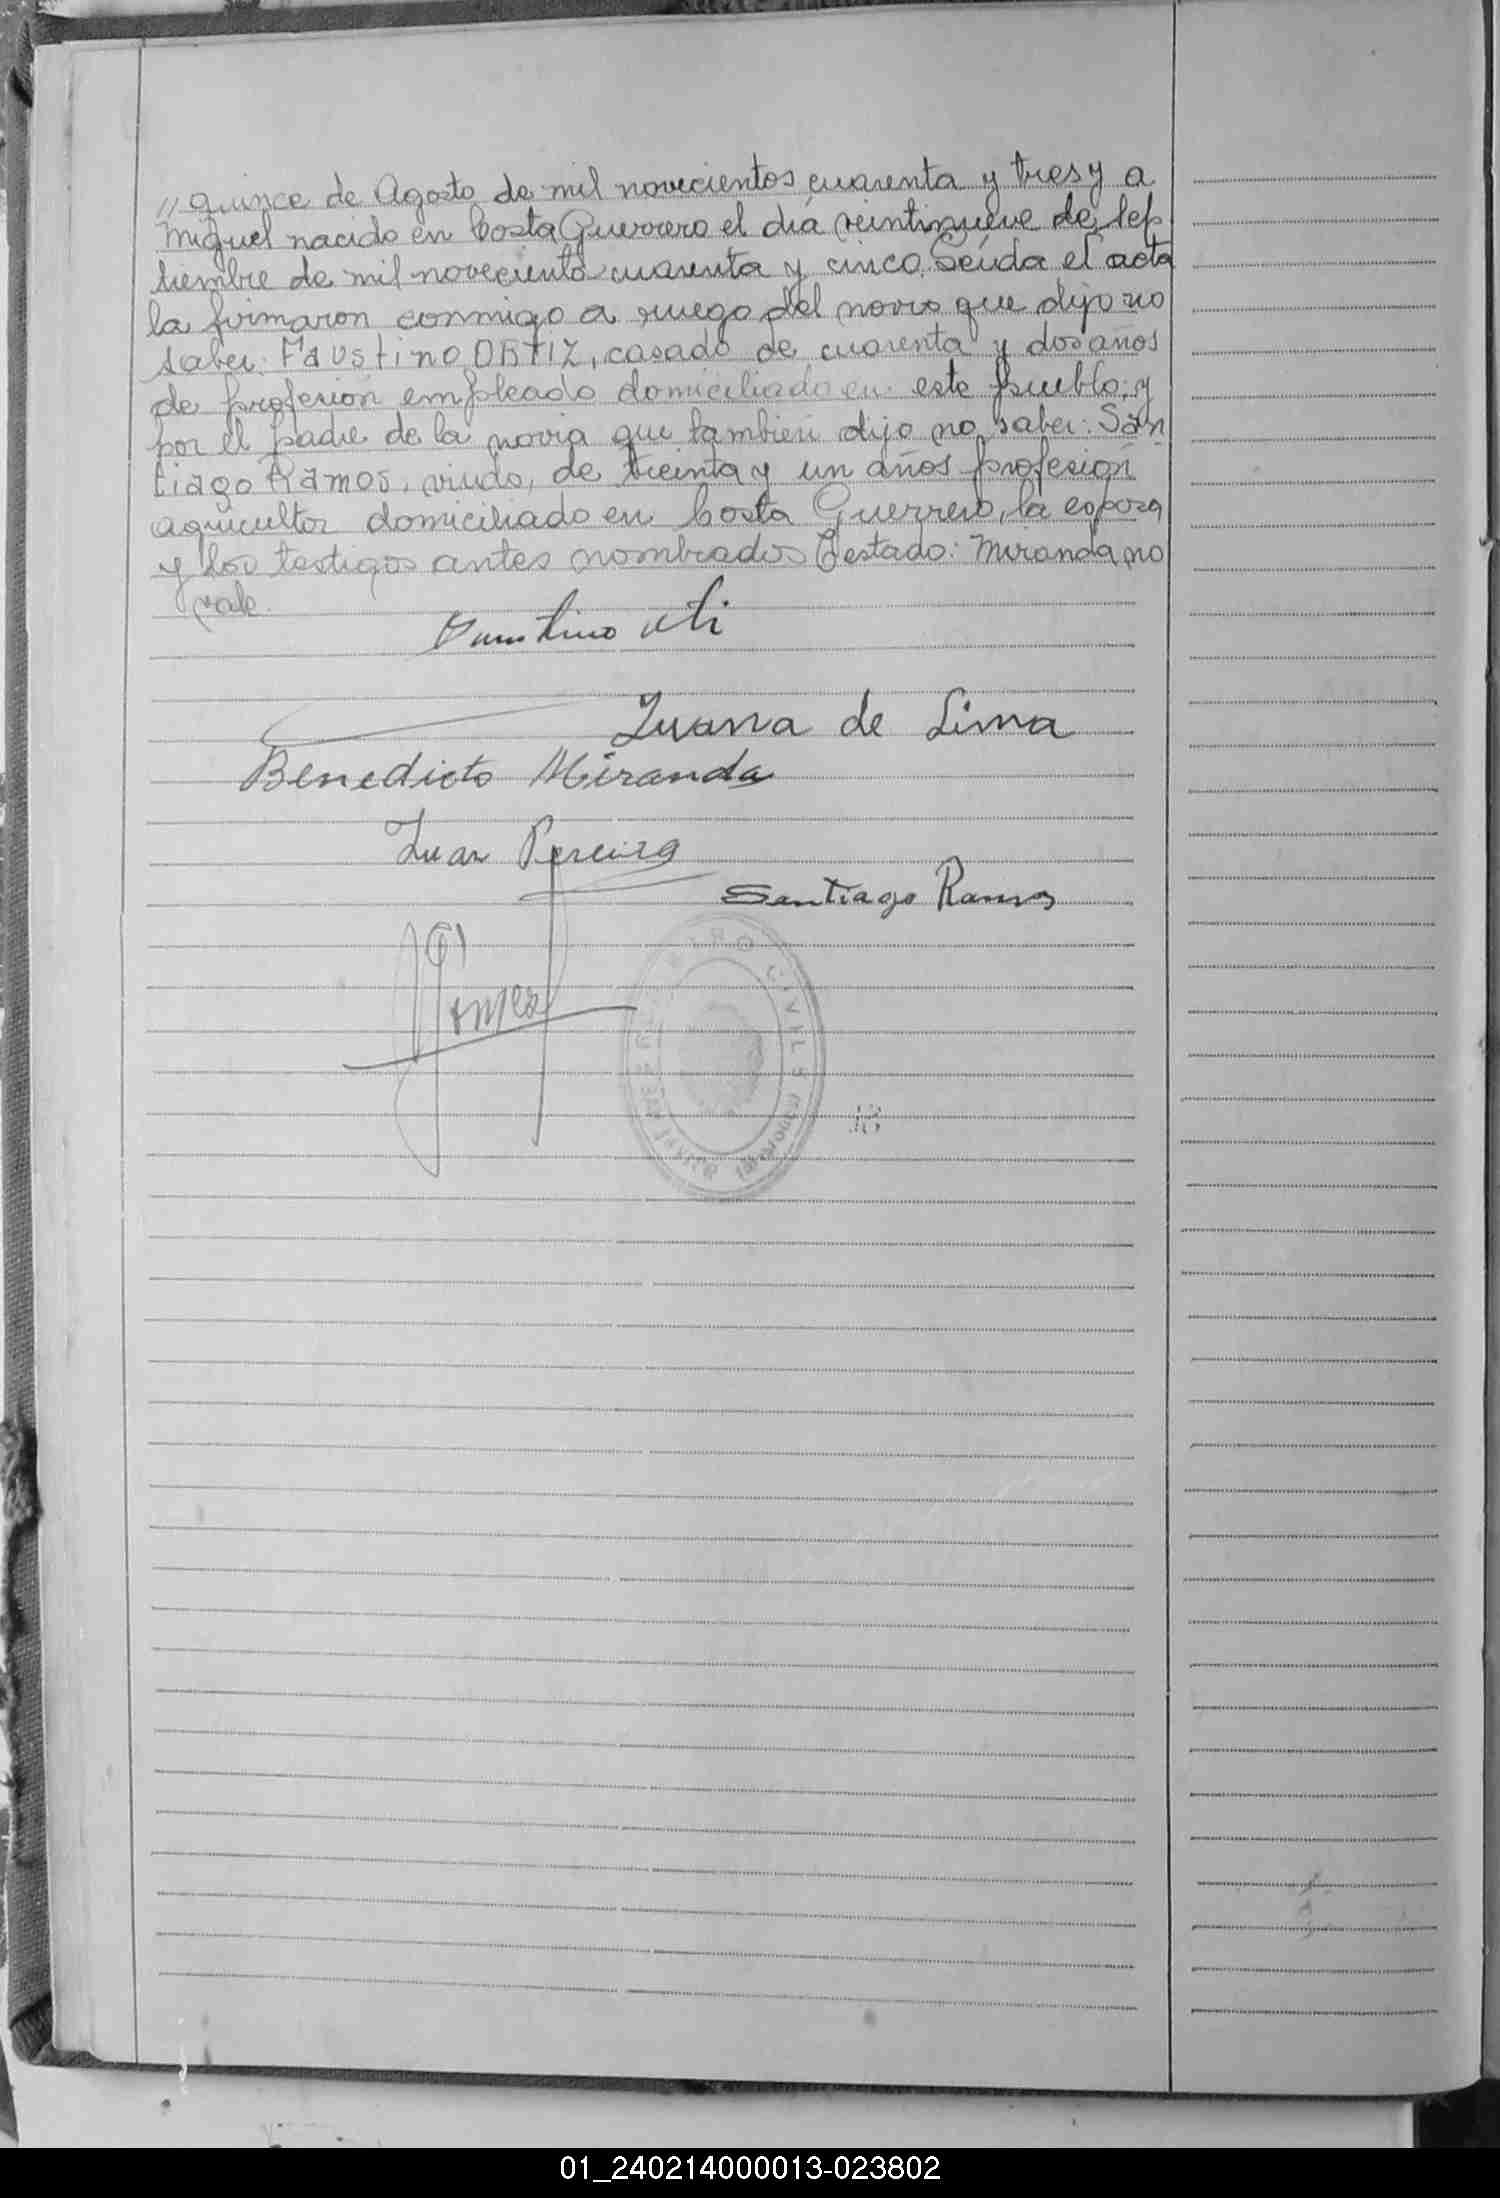 // quince de Agosto de mil novecientos cuarenta y tres y a
Miguel nacido en Costa Guerrero el día veintinueve de Sep
tiembre de mil novecientos cuarenta y cinco. Leída el acta
la firmaron conmigo a ruego del novio que dijo no
saber: Faustino ORTIZ, casado de cuarenta y dos años
de profesión empleado domiciliado en este pueblo; y
por el padre de la novia que tambien dijo no saber: San
tiago Ramos, viudo, de treinta y un años profesión
agricultor domiciliado en Costa Guerrero, la esposa
y los testigos antes nombrados Testado: Miranda no
vale.
Faustino
Juana de Lima
Benedicto Miranda
Juan Pereira
Santiago Ramos
Gomez
REGISTRO CIVIL
18
01_240214000013-023802